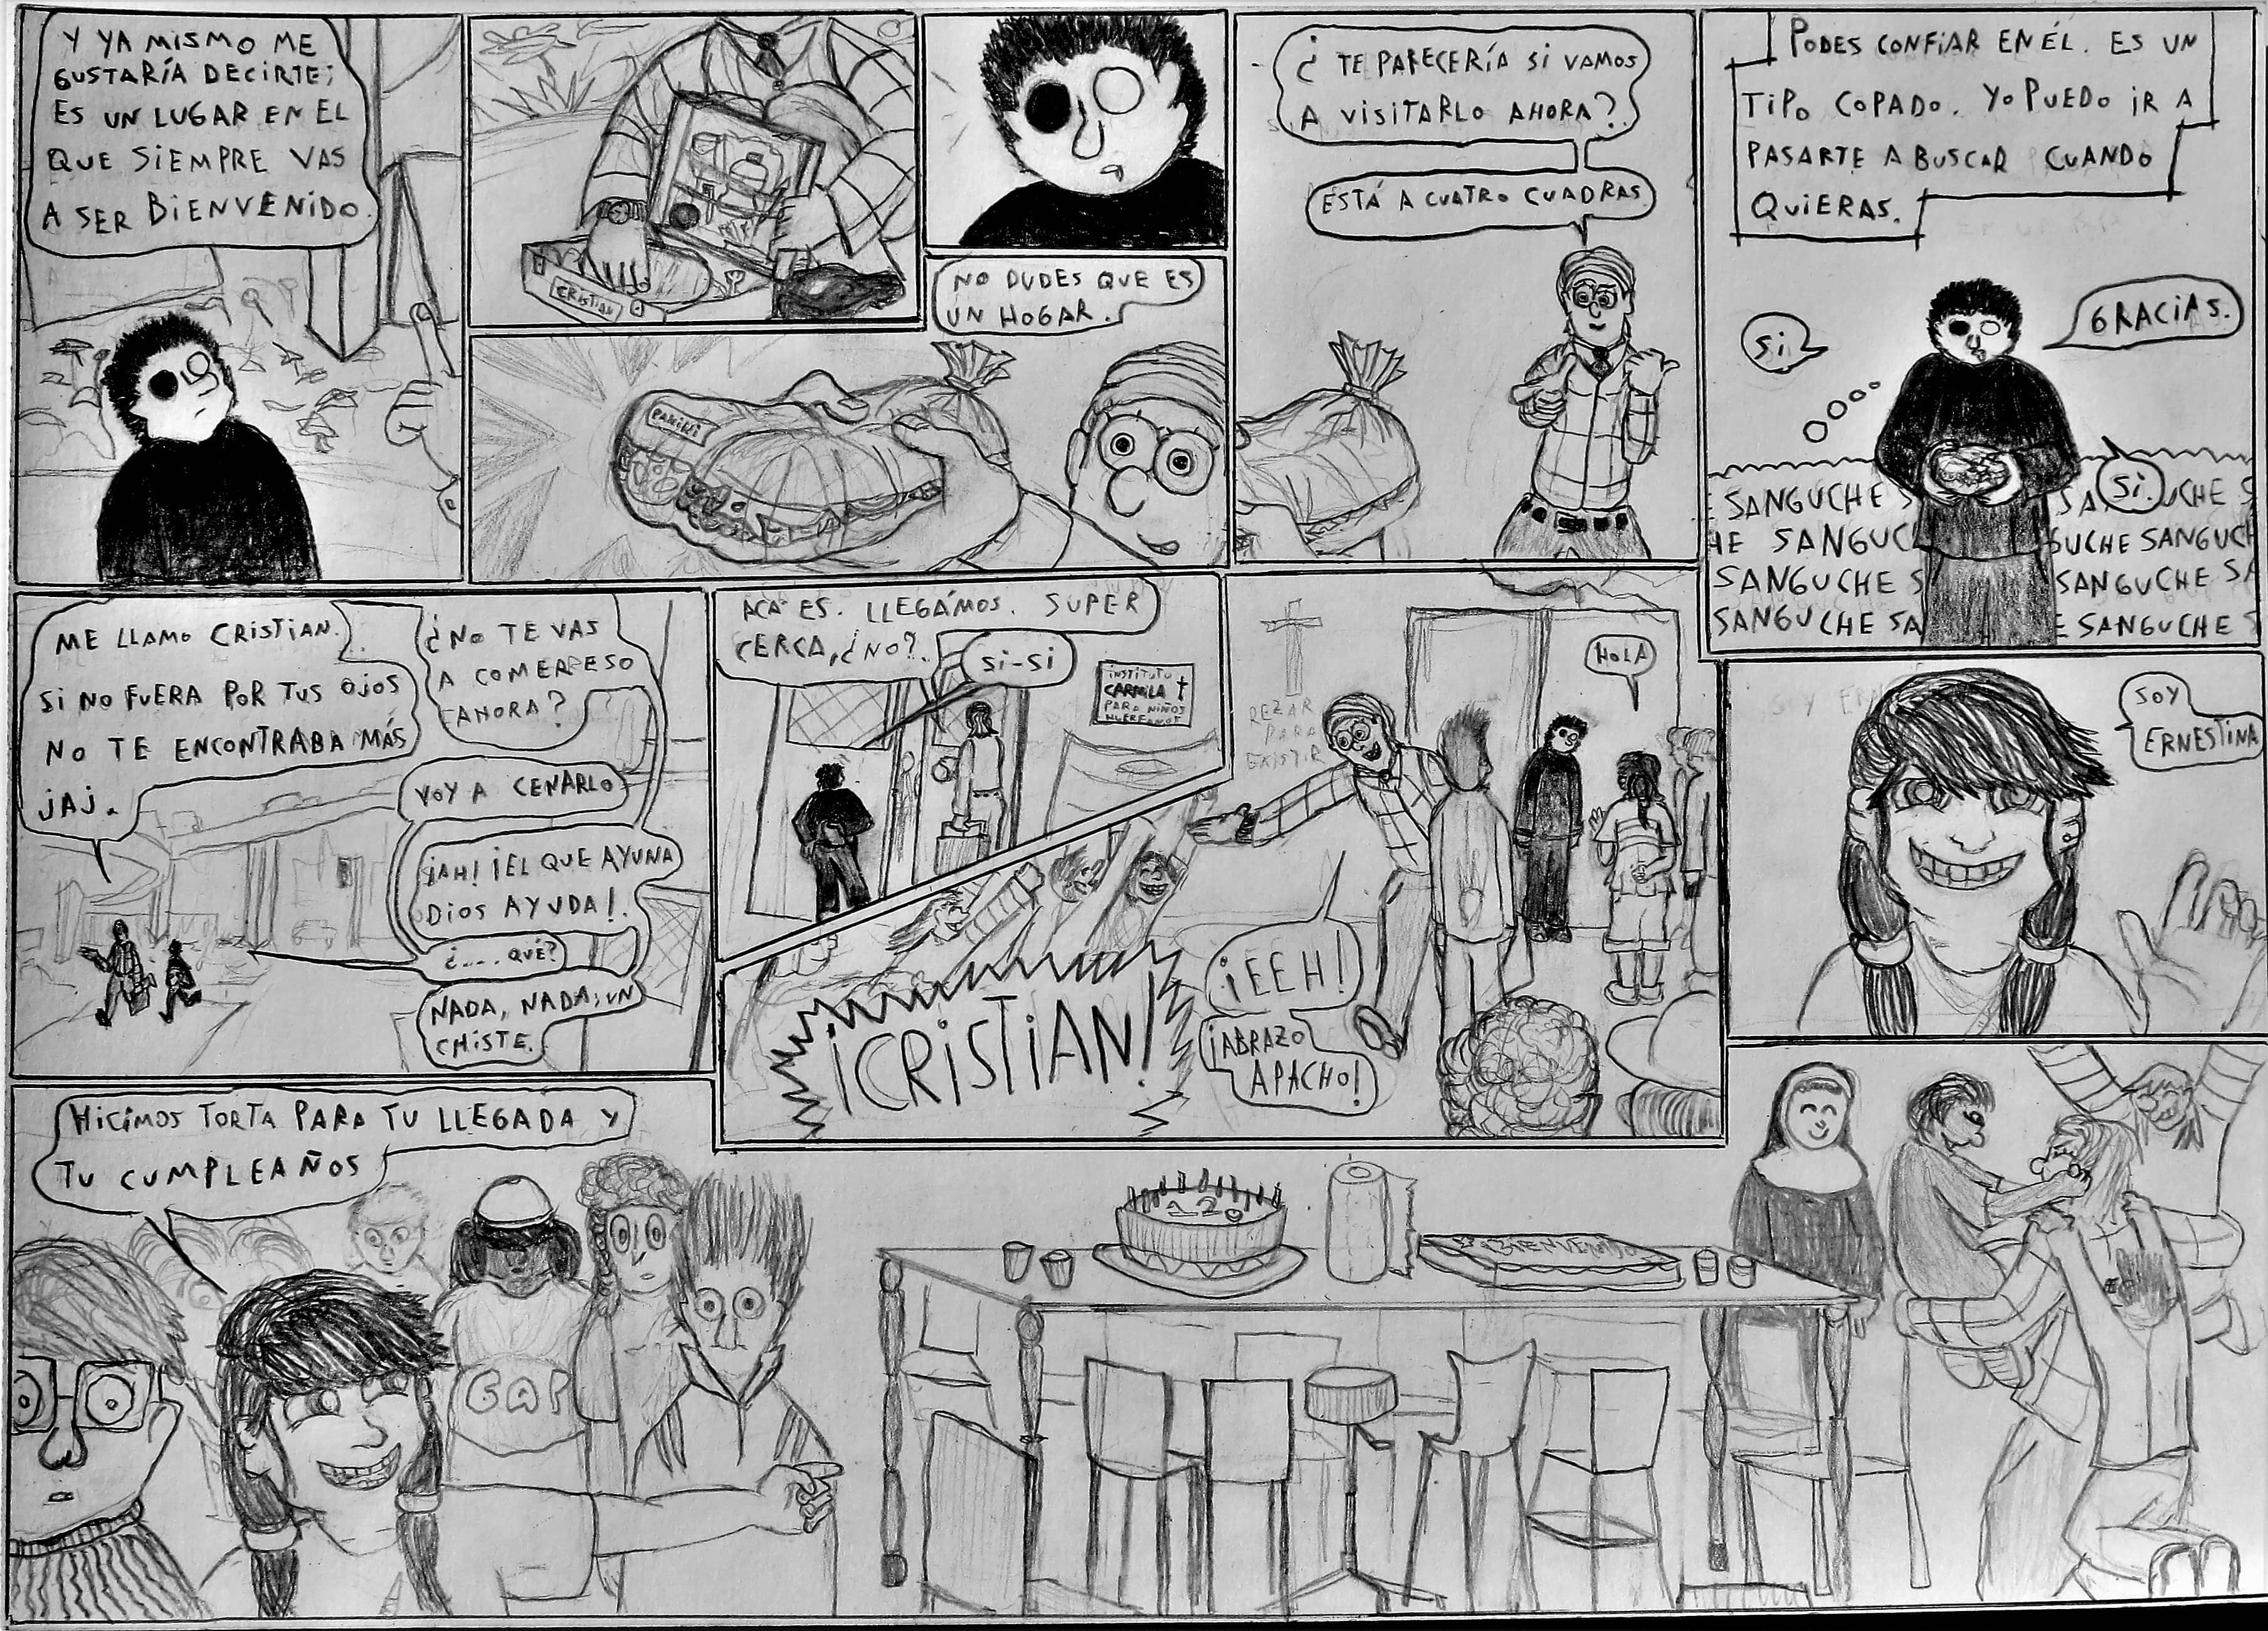 Y YA MISMO ME
GUSTARÍA DECIRTE;
ES UN LUGAR EN EL
QUE SIEMPRE VAS
A SER BIENVENIDO.
CRISTIAN
NO DUDES QUE ES
UN HOGAR.
¿TE PARECERÍA SI VAMOS
A VISITARLO AHORA?
ESTÁ A CUATRO CUADRAS.
PODES CONFIAR EN ÉL. ES UN
TIPO COPADO. YO PUEDO IR A
PASARTE A BUSCAR CUANDO
QUIERAS.
SI
GRACIAS.
SI.
SANGUCHE S
SA UCHE S
HE SANGUC
GUCHE SANGUCH
SANGUCHE S
SANGUCHE SA
SANGUCHE SA
E SANGUCHE S
ME LLAMO CRISTIAN.
SI NO FUERA POR TUS OJOS
NO TE ENCONTRABA MÁS
JAJ.
¿NO TE VAS
A COMER ESO
AHORA?
VOY A CENARLO
¡AH! ¡EL QUE AYUNA
DIOS AYUDA!.
¿.... QUÉ?
NADA, NADA; UN
CHISTE.
ACÁ ES. LLEGÁMOS. SUPER
CERCA, ¿NO?.
SI-SI
INSTITUTO
CARMILA
PARA NIÑOS
HUERFANOS
REZAR
PARA
EXISTIR
HOLA
¡CRISTIAN!
¡EEH!
¡ABRAZO
APACHO!
SOY
ERNESTINA
HICIMOS TORTA PARA TU LLEGADA Y
TU CUMPLEAÑOS
GAP
12
BIENVENIDO